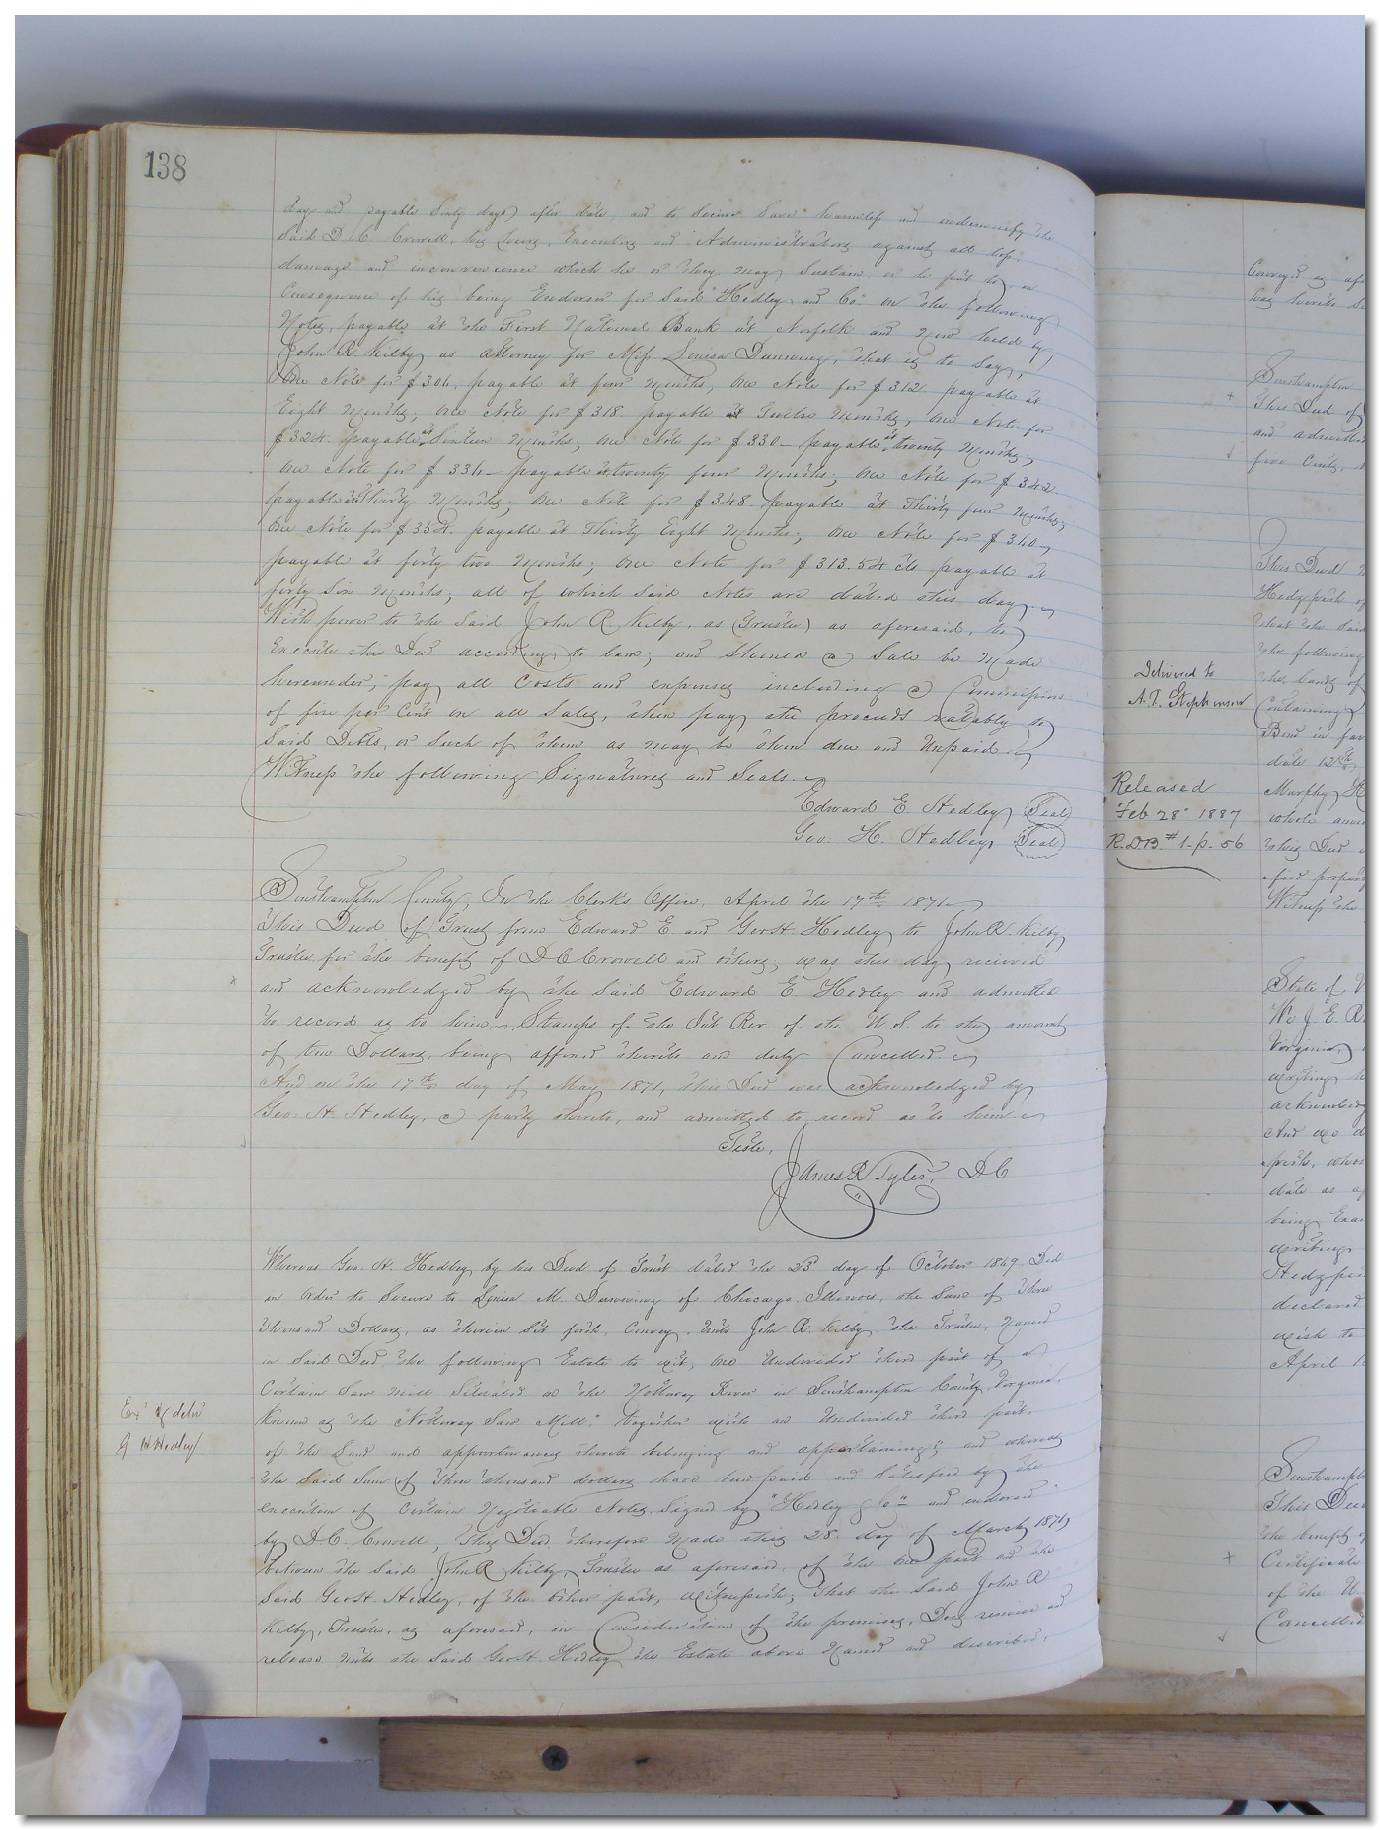 138
day and payable Sixty days after date and to Secure Save harmless and indemnify the
Said D C Crowell, his heirs, Executors and Administrators against all loss,
damage and inconvenience which he or they may Sustain or be put to, in
Consequence of his being Endorser for Said "Hedley and Co" on the following
Notes, payable at the First National Bank at Norfolk and now held by
John R Kilby as attorney for Miss Louisa Dunning, that is to Say,
One Note for $306, payable at four Months, One Note for $312 payable at
Eight Months, One Note for $318 payable at Twelve Months, One Note for
$324. payable at Sixteen Months, One Note for $330 - payable at twenty Months,
One Note for $336 - payable at twenty four Months; One Note for $342.
payable at Thirty Months, One Note for $348 payable at Thirty four Months;
One Note for $354. payable at Thirty Eight Months, One Note for $360
payable at forty two Months; One Note for $313.54 cts payable at
forty Six Months, all of which Said Notes are dated this day.
With power to the Said John R Kilby, as (Trustee) as aforesaid, to
Execute this Deed according to law; and Should a Sale be Made
hereunder, pay all Costs and expenses including a Commission
of five per Cent on all Sales, then pay the proceeds ratably to
Said Debts, or Such of them as may be then due and Unpaid.
Witness the following Signatures and Seals.
Edward E Hedley Seal
Geo: H. Hedley, Seal
Southampton County, In the Clerk's Office, April the 17th 1871
This Deed of Trust from Edward E. and Geo H. Hedley to John R. Kilby,
Trustee for the benefit of D C Crowell and others, was this day received
and acknowledged by the Said Edward E Hedley and admitted
to record as to him. Stamps of the Int Rev of the U.S. to the amount
of two Dollars, being affixed thereto and duly Cancelled.
And on the 17th day of May 1871, this Deed was acknowledged by
Geo: H Hedley, a party thereto, and admitted to record as to him
Teste,
James R Tyler, D C
Whereas Geo. H. Hedley by his Deed of Trust dated the 23d day of October 1869 Did
in order to Secure to Louisa M. Dunning of Chicago Illinois, the Sum of Three
thousand Dollars, as therein Set forth, Convey Unto John R. Kilby the Trustee, Named
in Said Deed the following Estate to wit, One Undivided third part of a
Certain Saw mill Situated on the Nottoway River in Southampton County, Virginia,
Known as the "Nottoway Saw Mill" together with an Undivided third part
of the Land and appurtenances thereto belonging and appertaining, and whereas
the Said Sum of Three thousand dollars have been paid and Satisfied by the
execution of Certain Negotiable Notes, Signed by "Hedley & Co" and endorsed
by D C. Crowell, This Deed therefore Made this 28 day of March 1871
between the Said John R Kilby Trustee as aforesaid, of the one part and the
Said Geo H. Hedley, of the Other part, Witnesseth; That the Said John R
Kilby, Trustee, as aforesaid, in Consideration of the premises, Does remise and
release unto the Said Geo H. Hedley the Estate above Named and described.
Exd & deld
G H Hedley
Delivered to
A.T. Stephenson
Released
Feb 28" 1887
R.D.B. #1 - p. 56
Conveyed as
Southampton
This Deed of
and admitted
five Cents,
This Deed
Hedgpeth of
that the Said
the following
the lands of
Containing
Bond in fav
date 12th
Murphy
whole
this Deed
Witness the
State of V
We J. E. R
Virginia,
writing
acknowledg
And we d
date as a
being Exa
writing
Hedgpe
declared
wish to
April 1
Southampt
This Deed
the benefit of
Certificate
of the U
Cancelled